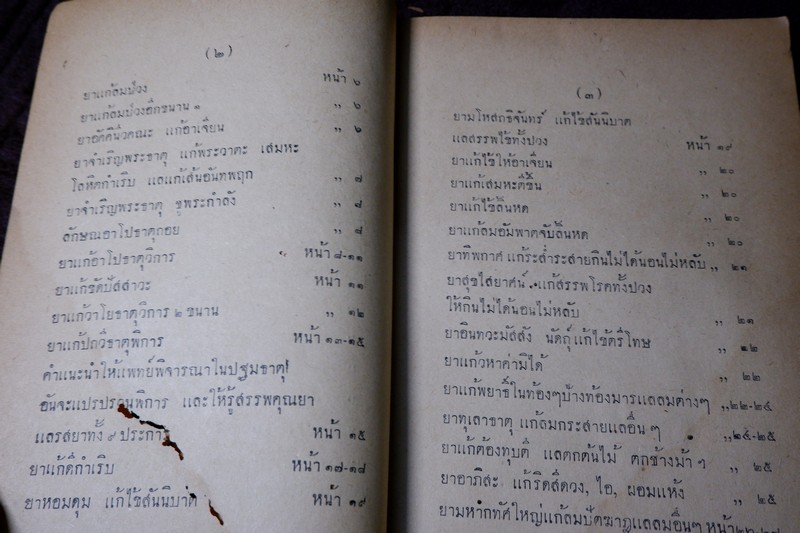 (๒)
ยาแก้ลมป่วง หน้า ๖
ยาแก้ลมป่วงอีกขนาน ๑ ,, ๖
ยาอัคคีนีวคณะ แก้อาเจียน ,, ๖
ยาจำเริญพระธาตุ แก้พระวาตะ เสมหะ
โลหิตกำเริบ แลแก้เส้นอันทพฤก ,, ๗
ยาจำเริญพระธาตุ ชูพระกำลัง ,, ๘
ลักษณอาโปธาตุถอย ,, ๘
ยาแก้อาโปธาตุวิการ หน้า ๘-๑๑
ยาแก้ขัดปัสสาวะ หน้า ๑๑
ยาแก้วาโยธาตุวิการ ๒ ขนาน ,, ๑๒
ยาแก้ปถวีธาตุพิการ หน้า ๑๓-๑๕
คำแนะนำให้แพทย์พิจารณาในปฐมธาตุ!
อันจะแปรปรวนพิการ และให้รู้สรรพคุณยา
แลรสยาทั้ง ๙ ประการ หน้า ๑๕
ยาแก้ดีกำเริบ หน้า ๑๗-๑๘
ยาหอมดุม แก้ไข้สันนิบาต หน้า ๑๙
(๓)
ยามโหสถธิจันทร์ แก้ไข้สันนิบาต
แลสรรพไข้ทั้งปวง หน้า ๑๙
ยาแก้ไข้ให้อาเจียน ,, ๒๐
ยาแก้เสมหะตีขึ้น ,, ๒๐
ยาแก้ไข้ลิ้นหด ,, ๒๐
ยาแก้ลมอัมพาตจับลิ้นหด ,, ๒๐
ยาทิพกาศ แก้ระส่ำระสายกินไม่ได้นอนไม่หลับ ,, ๒๑
ยาสุขไสยาศน์ แก้สรรพโรคทั้งปวง
ให้กินไม่ได้นอนไม่หลับ ,, ๒๑
ยาอินทวะมัสสัง นัดถุ์แก้ไข้ตรีโทษ ,, ๒๒
ยาแก้วหาค่ามิได้ ,, ๒๒
ยาแก้พยาธิ์ในท้องๆบ้างท้องมารแลลมต่างๆ ,,๒๒-๒๔
ยาทุเลาธาตุ แก้ลมกระสายแลอื่นๆ ,,๒๔-๒๕
ยาแก้ต้องทุบตี แลตกต้นไม้ ตกช้างม้า ๆ ,, ๒๕
ยาอาภิสะ แก้ริดสีดวง, ไอ, ผอมแห้ง ,, ๒๕
ใหญ่แก้ลมปัตฆาฏแลลมอื่นๆ หน้า